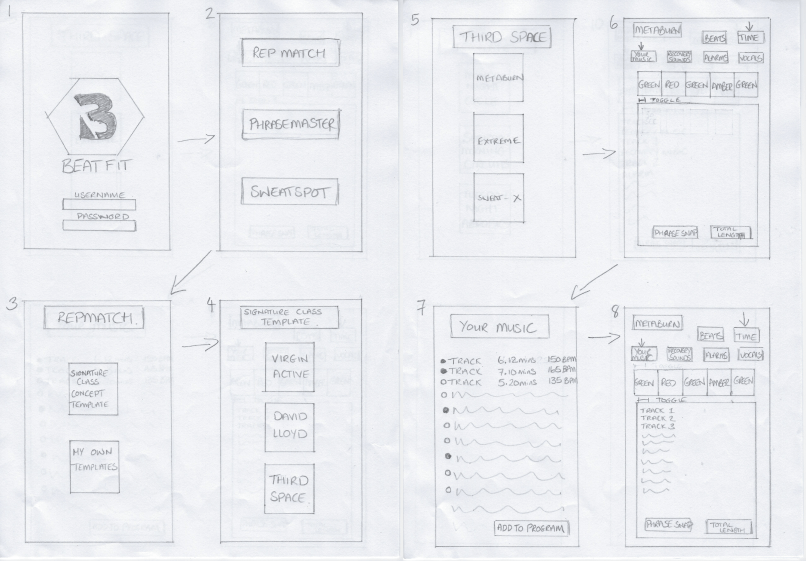 1
3
BEATFIT
USERNAME
PASSWORD
2
REP MATCH
PHRASEMASTER
SWEATSPOT
3
REPMATCH.
SIGNATURE
CLASS
CONCEPT
TEMPLATE
MY OWN
TEMPLATES
4
SIGNATURE CLASS
TEMPLATE.
VIRGIN
ACTIVE
DAVID
LLOYD
THIRD
SPACE.
5
THIRD SPACE
METABURN
EXTREME
SWEAT-X
6
METABURN
BEATS
TIME
YOUR
MUSIC
RECOVERY
SOUNDS
ALARMS
VOCALS
GREEN RED GREEN AMBER GREEN
TOGGLE
PHRASE SNAP
TOTAL
LENGTH
7
YOUR MUSIC
TRACK 6.12mins 150 BPM
TRACK 7.10mins 165 BPM
TRACK 5.20mins 135 BPM
ADD TO PROGRAM
8
METABURN
BEATS
TIME
YOUR
MUSIC
RECOVERY
SOUNDS
ALARMS
VOCALS
GREEN RED GREEN AMBER GREEN
TOGGLE
TRACK 1
TRACK 2
TRACK 3
PHRASE SNAP
TOTAL
LENGTH